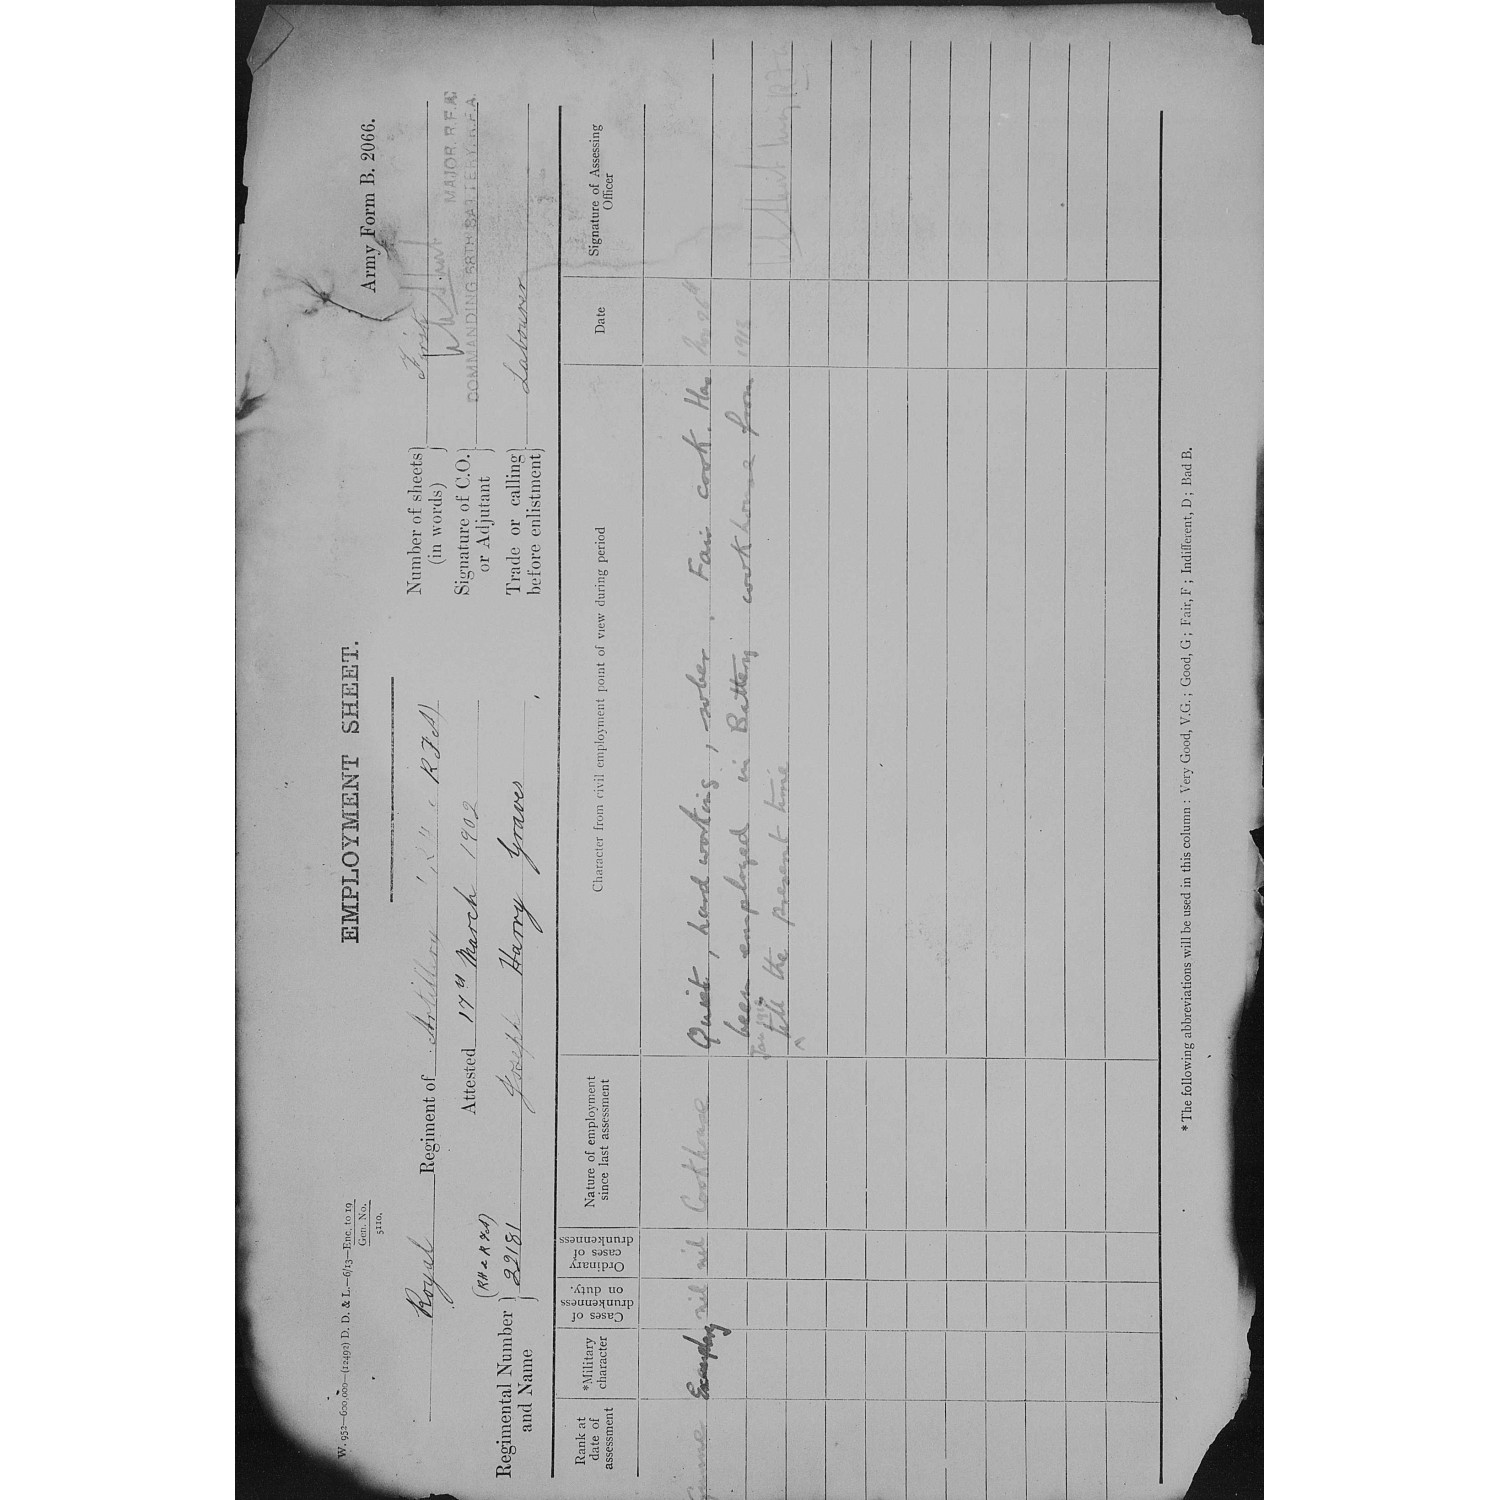 W. 952—600,000—(12492) D. D. & L.—6/13—Enc. to 19
Gen. No.
5110.
Army Form B. 2066.
EMPLOYMENT SHEET.
Royal Regiment of Artillery R.F.A)
Attested 17th March 1902
(RH & RFA)
Regimental Number and Name } 22181 Joseph Harry Graves
Number of sheets (in words) } First
Signature of C.O. or Adjutant }
MAJOR. R.F.A.
COMMANDING 68TH BATTERY. R.F.A.
Trade or calling before enlistment } Labourer
Rank at date of assessment
*Military character
Cases of drunkenness on duty.
Ordinary cases of drunkenness
Nature of employment since last assessment
Character from civil employment point of view during period
Date
Signature of Assessing Officer
Exemplary nil nil Cookhouse Quiet, hard working, sober. Fair cook. Has
been employed in Battery cookhouse from
till the present time
*The following abbreviations will be used in this column: Very Good, V.G.; Good, G; Fair, F; Indifferent, D; Bad B.